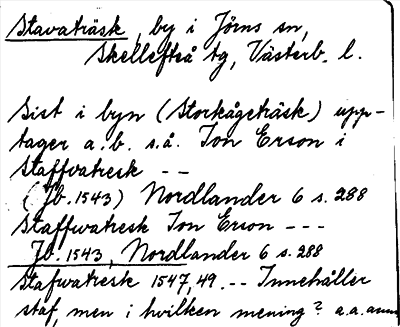 Stavaträsk, by i Jörns sn,
Skellefteå tg, Västerb. l.
Sist i byn (Storkågeträsk) upp-
tager a.b. s.å. Jon Erson i
Staffvatresk --
(Jb. 1543) Nordlander 6 s. 288
Staffwatresk Jon Erson ---
Jb. 1543, Nordlander 6 s. 288
Stafwatresk 1547, 49. -- Innehåller
staf, men i hvilken mening? a.a.